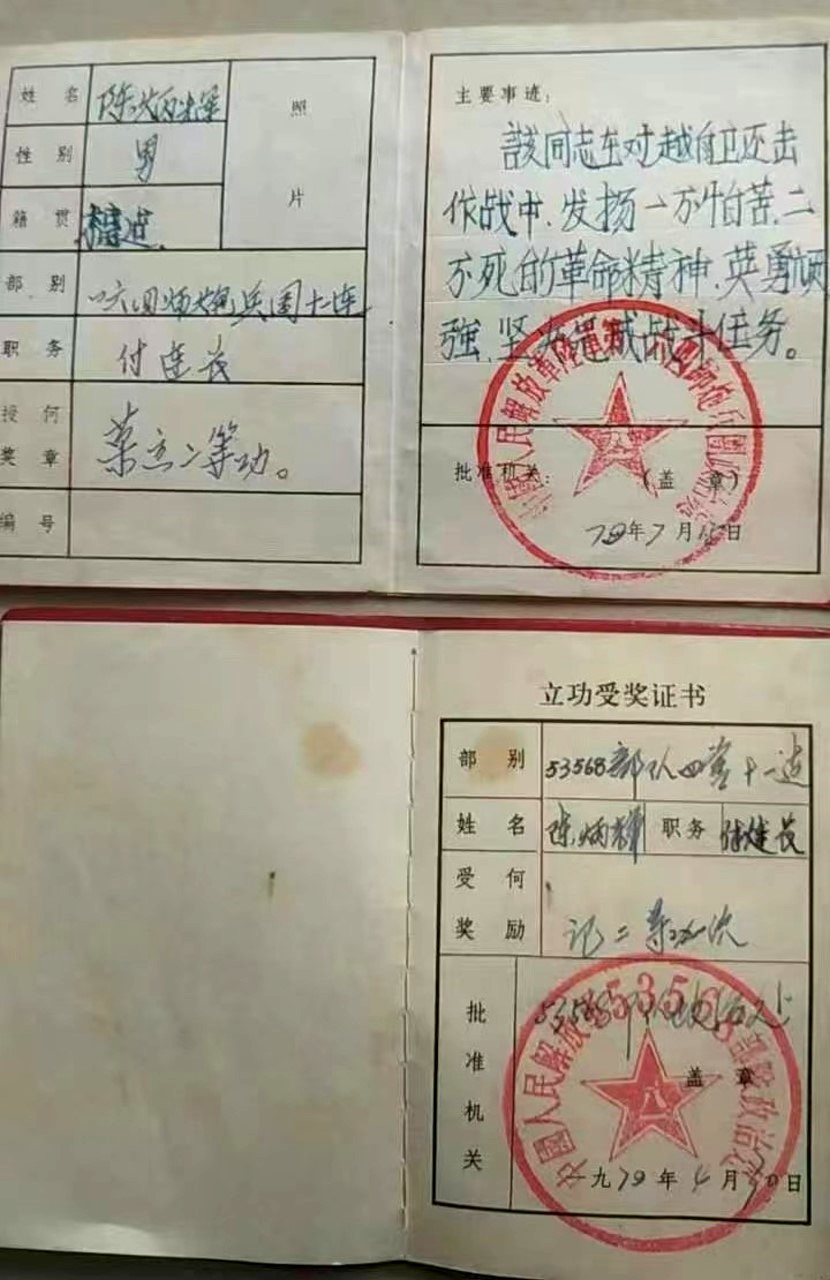 姓名 陈炳辉
性别 男
籍贯
部别 一六四师炮兵团十一连
职务 付连长
授何奖章 荣立二等功。
编号
照片
主要事迹：
該同志在对越自卫还击
作战中，发扬一不怕苦、二
不死的革命精神，英勇顽
强，坚决完成战斗任务。
批准机关：
（盖章）
79年7月15日
立功受奖证书
部别 53568部队四营十一连
姓名 陈炳辉 职务 付连长
受何奖励 记二等功一次
批准机关 53568部队政治处
盖章
一九79年4月30日